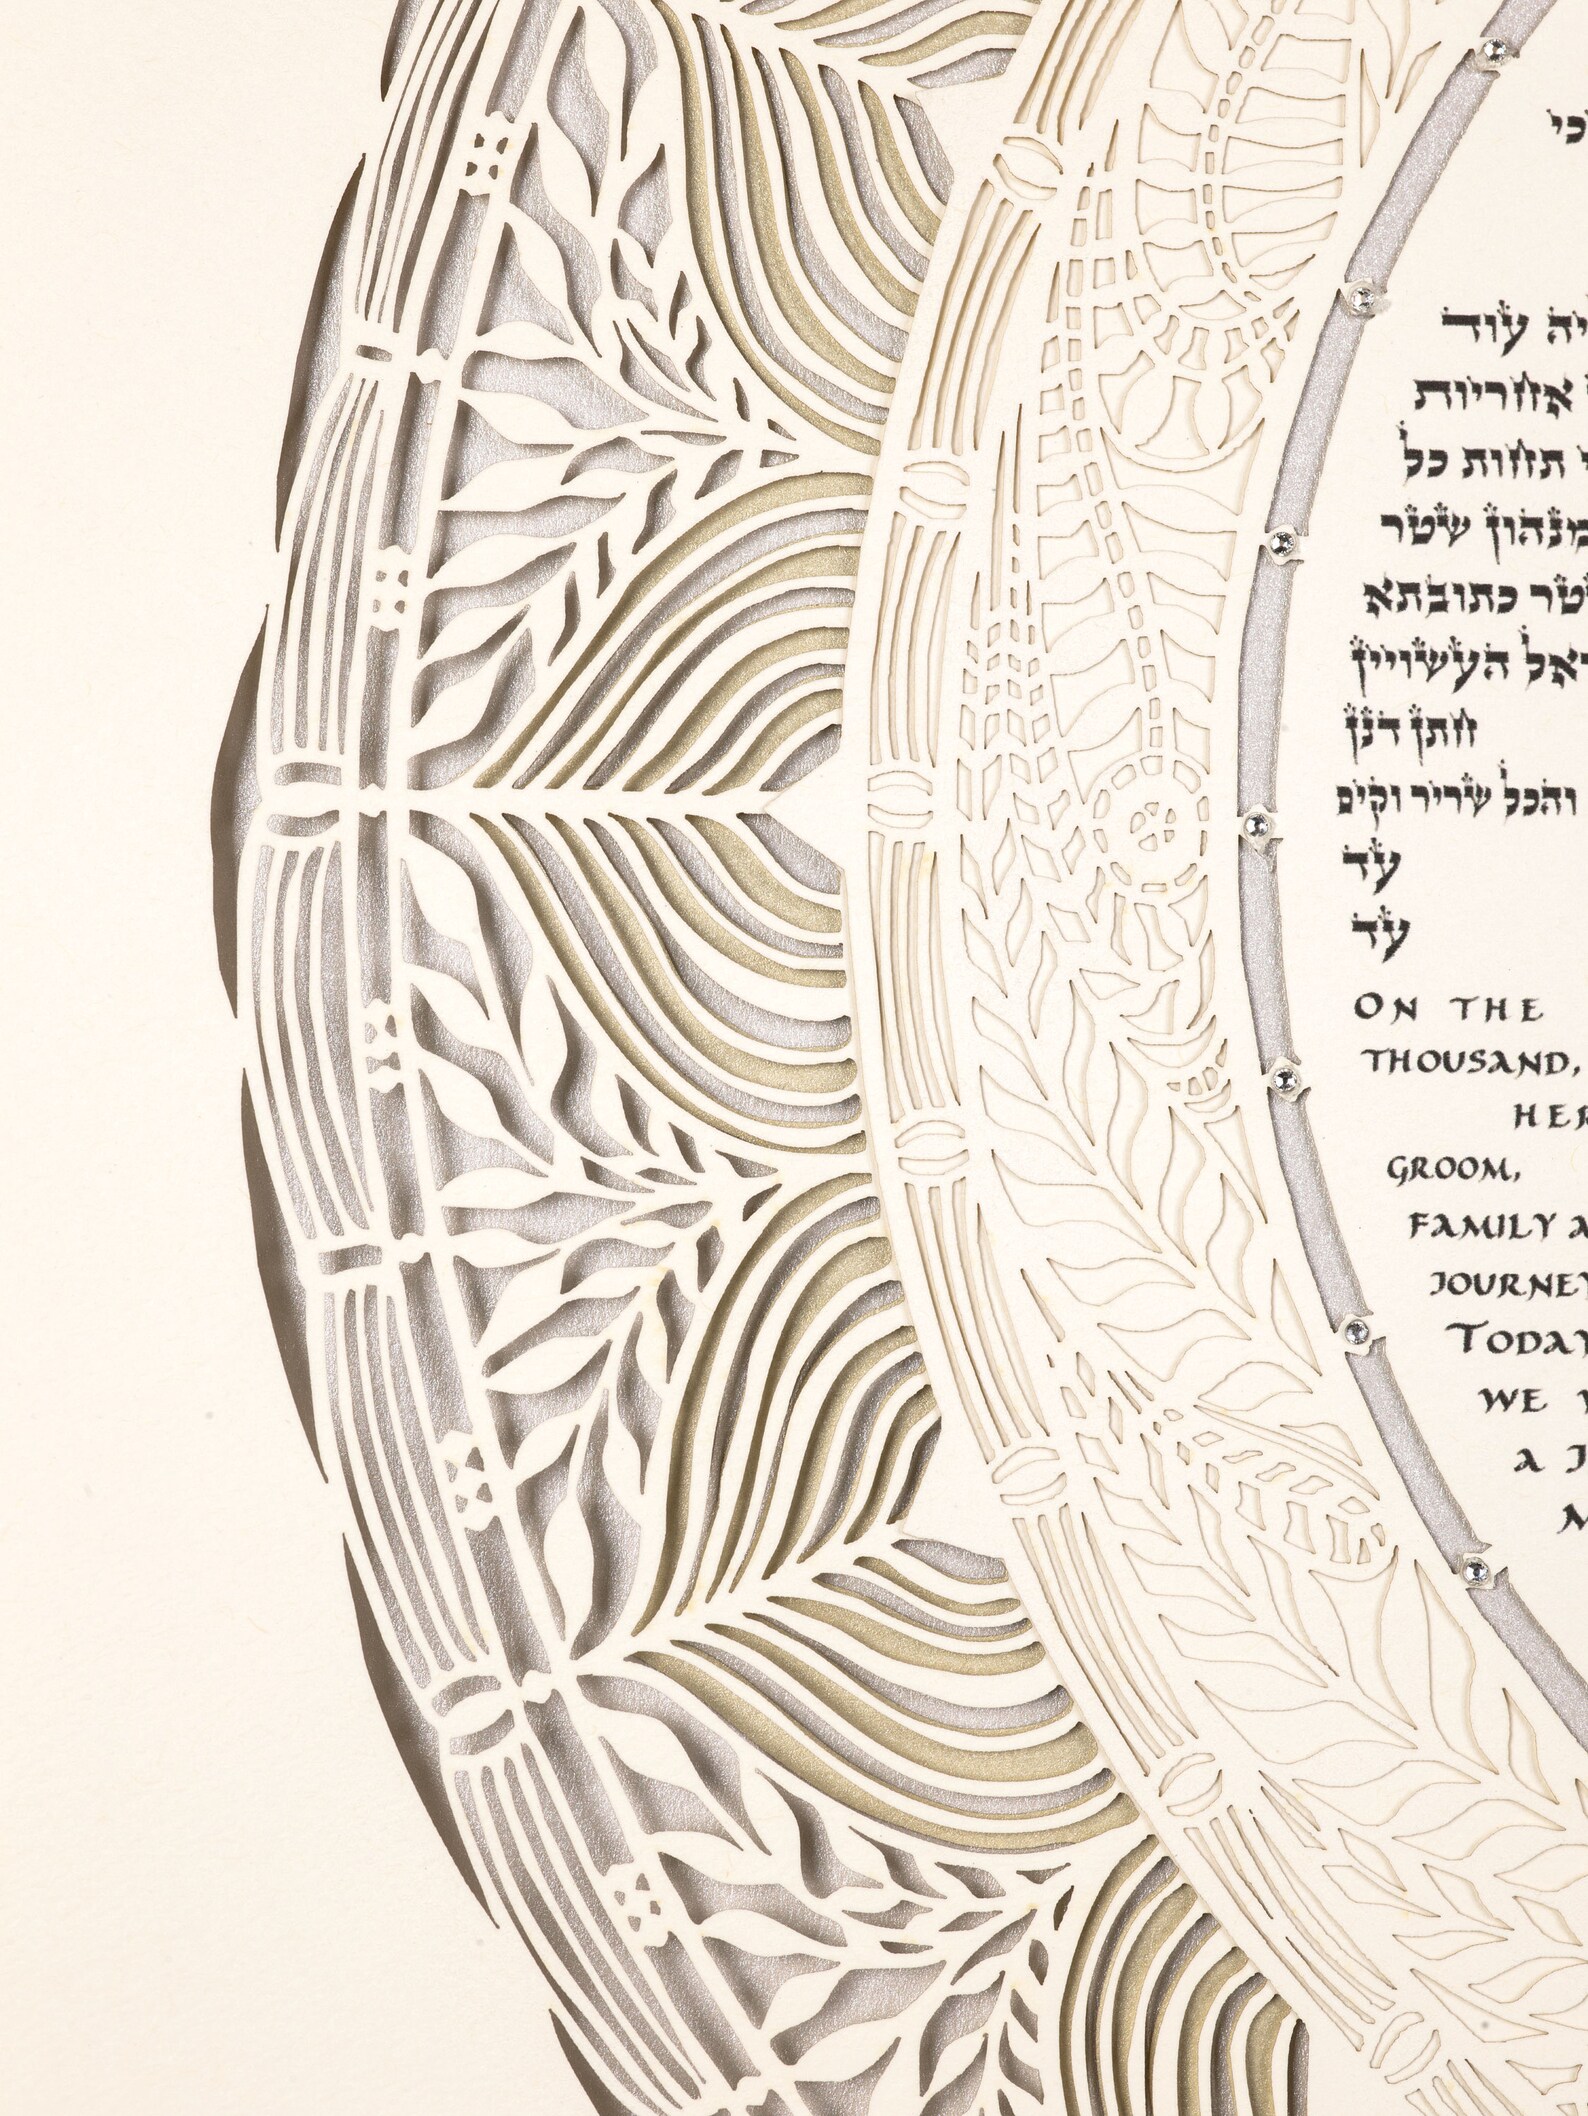 עוד
אחריות
תחות כל
מנהון שטר
כתובתא
העשויין
חתן דנן
והכל שריר וקים
עד
עד
ON THE
THOUSAND,
HER
GROOM,
FAMILY A
JOURNEY
TODAY
WE
A